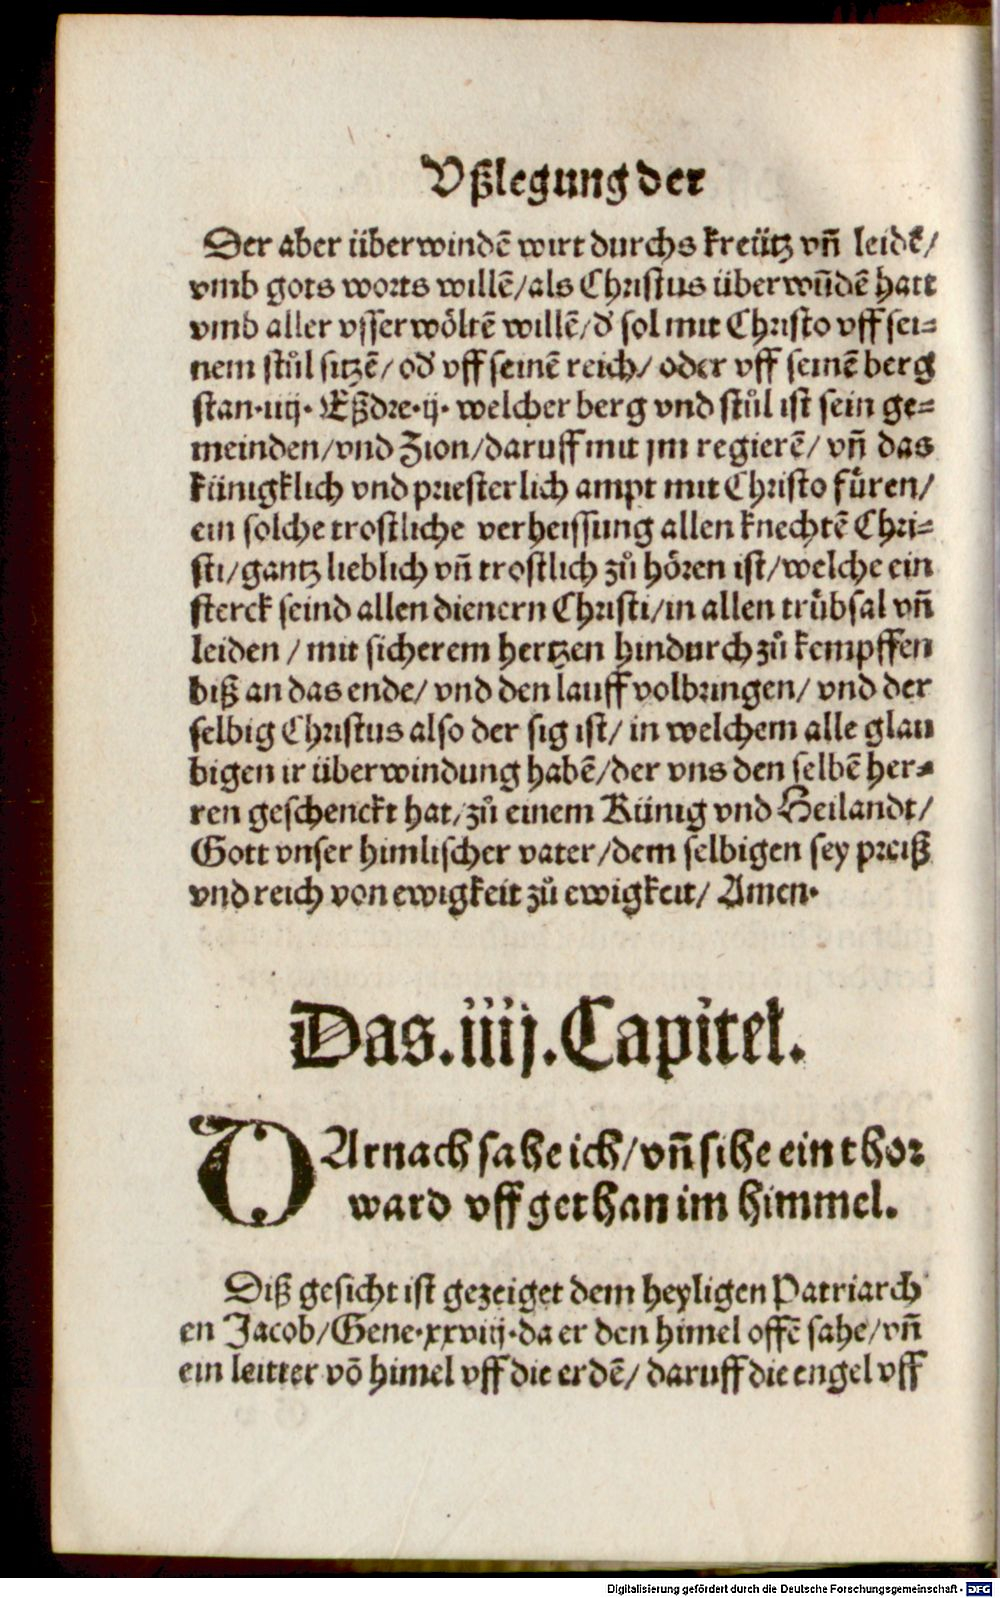 Vßlegung der
Der aber überwindē wirt durchs kreütz vñ leidē/
vmb gots worts willē/als Christus überwūdē hatt
vmb aller vsserwöltē willē/d' sol mit Christo vff sei=
nem stůl sitzē/ od' vff seinē reich/ oder vff seinē berg
stan·iiij· Eßdre·ij· welcher berg vnd stůl ist sein ge=
meinden/vnd Zion/daruff mit jm regierē/ vñ das
künigklich vnd priesterlich ampt mit Christo fůren/
ein solche trostliche verheissung allen knechtē Chri=
sti/gantz lieblich vñ trostlich zů hören ist/welche ein
sterck seind allen dienern Christi/in allen trůbsal vñ
leiden / mit sicherem hertzen hindurch zů kempffen
biß an das ende/ vnd den lauff volbringen/ vnd der
selbig Christus also der sig ist/ in welchem alle glau
bigen ir überwindung habē/der vns den selbē her=
ren geschenckt hat/zů einem Künig vnd Heilandt/
Gott vnser himlischer vater/dem selbigen sey preiß
vnd reich von ewigkeit zů ewigkeit/ Amen·
Das.iiij.Capitel.
DArnach sahe ich/vñ sihe ein thor
ward vffgethan im himmel.
Diß gesicht ist gezeiget dem heyligen Patriarch
en Jacob/Gene·xxviij·da er den himel offē sahe/vñ
ein leitter vō himel vff die erdē/ daruff die engel vff
Digitalisierung gefördert durch die Deutsche Forschungsgemeinschaft - DFG